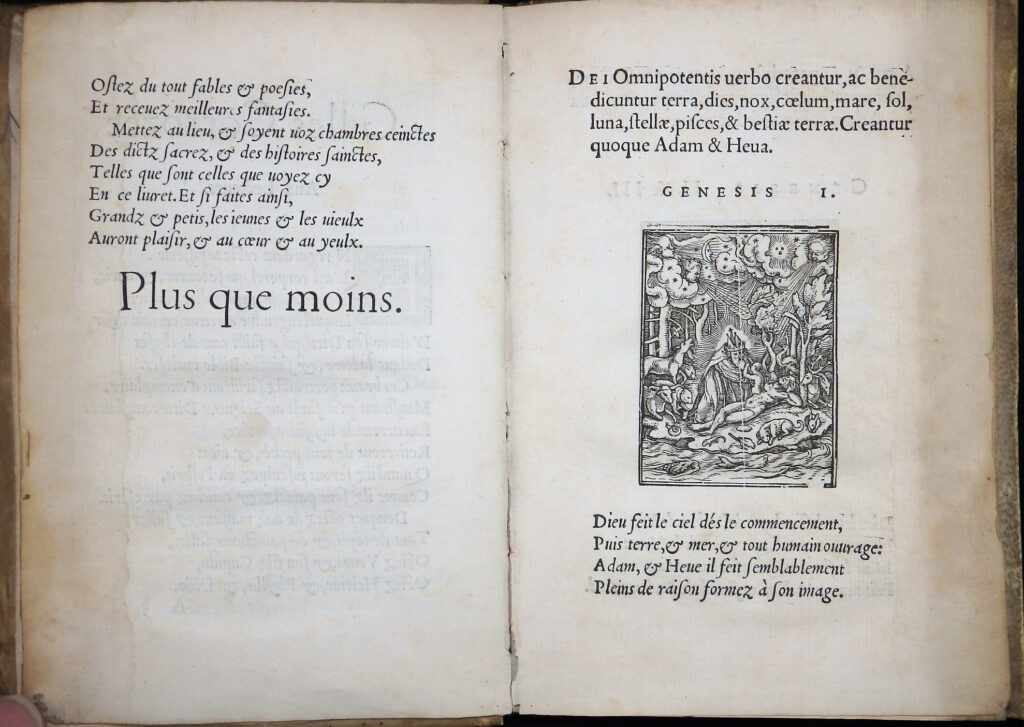 Oſtez du tout fables & poeſies,
Et receuez meilleures fantaſies.
Mettez au lieu, & ſoyent uoz chambres ceinctes
Des dictz ſacrez, & des hiſtoires ſainctes,
Telles que ſont celles que uoyez cy
En ce liuret. Et ſi faites ainſi,
Grandz & petis, les ieunes & les uieulx
Auront plaiſir, & au cœur & au yeulx.
Plus que moins.
DEI Omnipotentis uerbo creantur, ac bene-
dicuntur terra, dies, nox, cœlum, mare, ſol,
luna, ſtellæ, piſces, & beſtiæ terræ. Creantur
quoque Adam & Heua.
GENESIS I.
Dieu feit le ciel dés le commencement,
Puis terre, & mer, & tout humain ouurage:
Adam, & Heue il feit ſemblablement
Pleins de raiſon formez à ſon image.